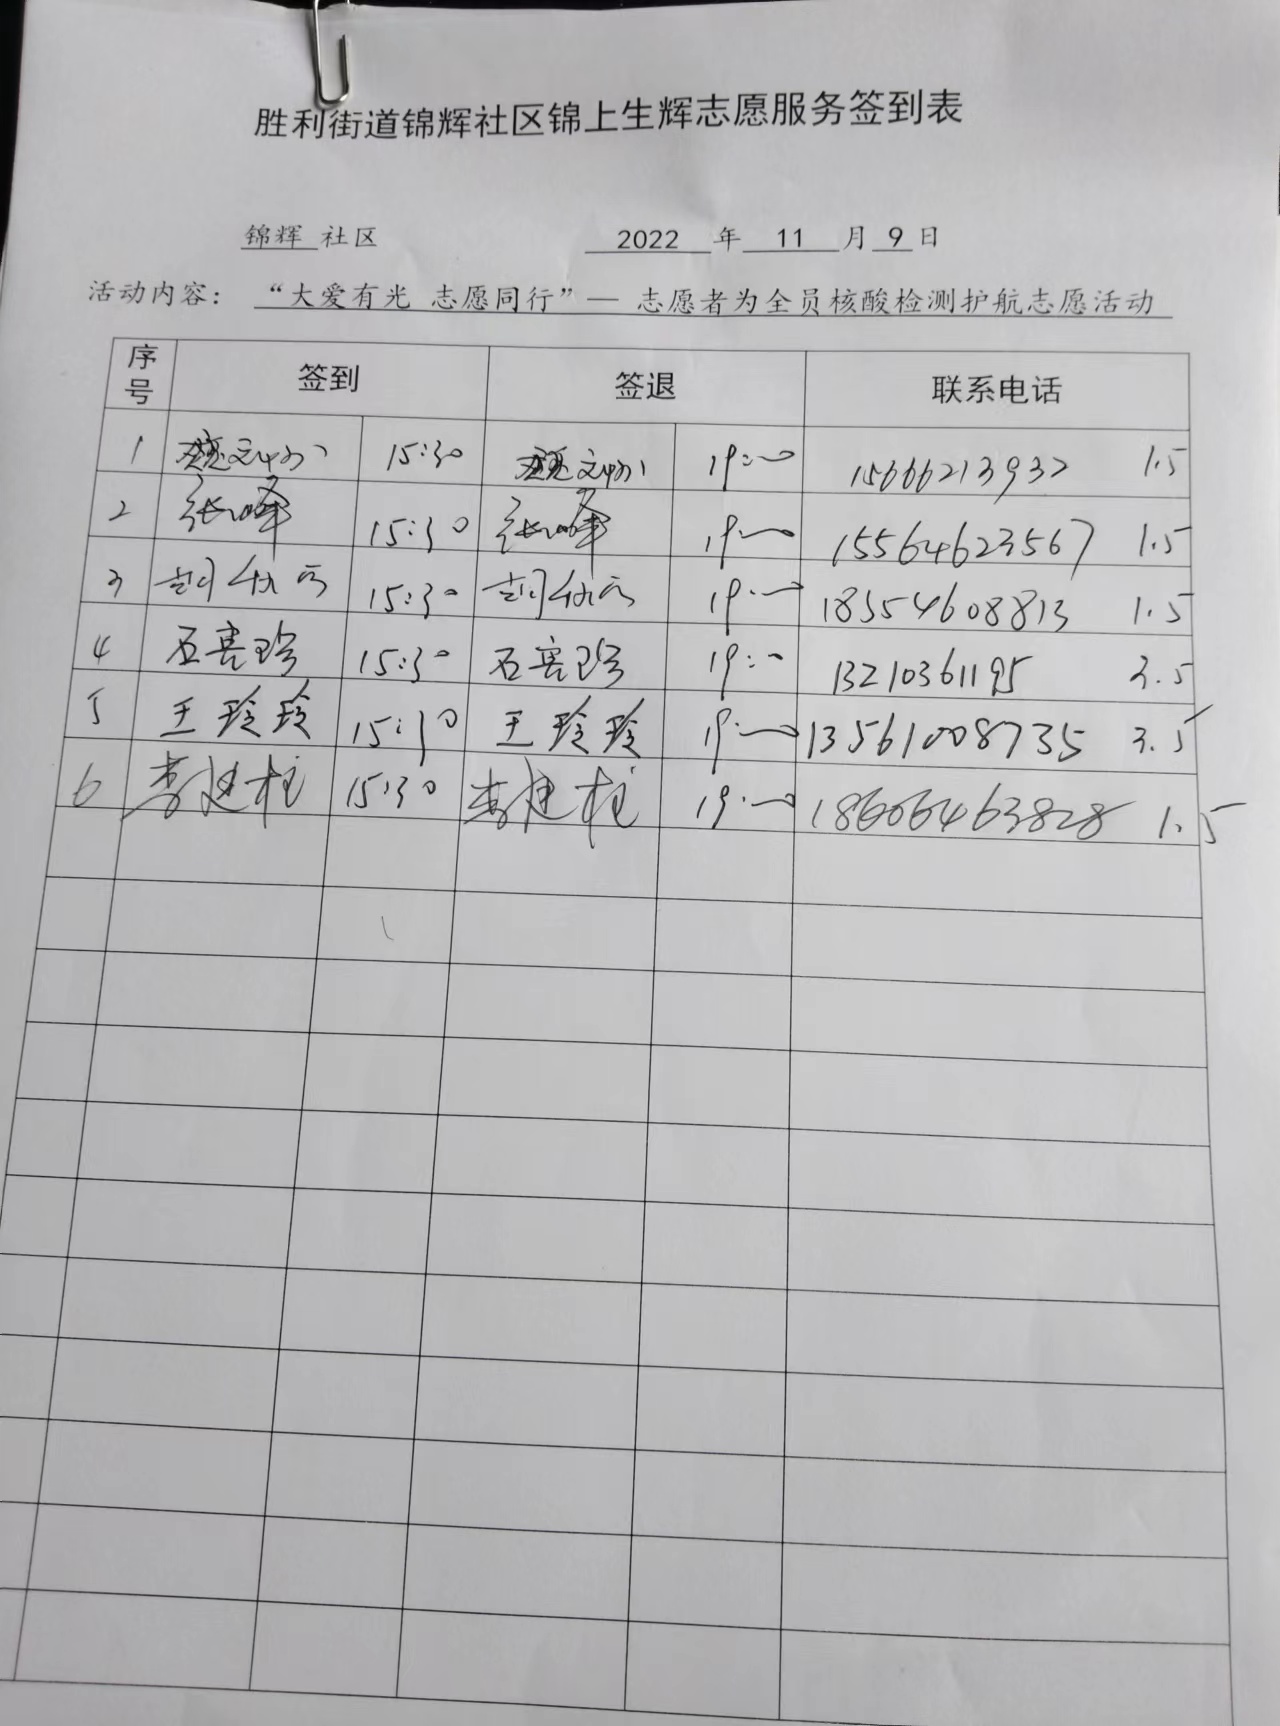 胜利街道锦辉社区锦上生辉志愿服务签到表
锦辉 社区 2022 年 11 月 9 日
活动内容： “大爱有光 志愿同行”— 志愿者为全员核酸检测护航志愿活动
序号 签到 签退 联系电话
1 15:30 19:00 15666213932 1.5
2 张峰 15:30 张峰 19:00 15564623567 1.5
3 15:30 19:00 18354608813 1.5
4 石 珍 15:30 石 珍 19:00 13210361195 3.5
5 王玲玲 15:30 王玲玲 19:00 13561008735 3.5
6 李建柱 15:30 李建柱 19:00 18606463828 1.5